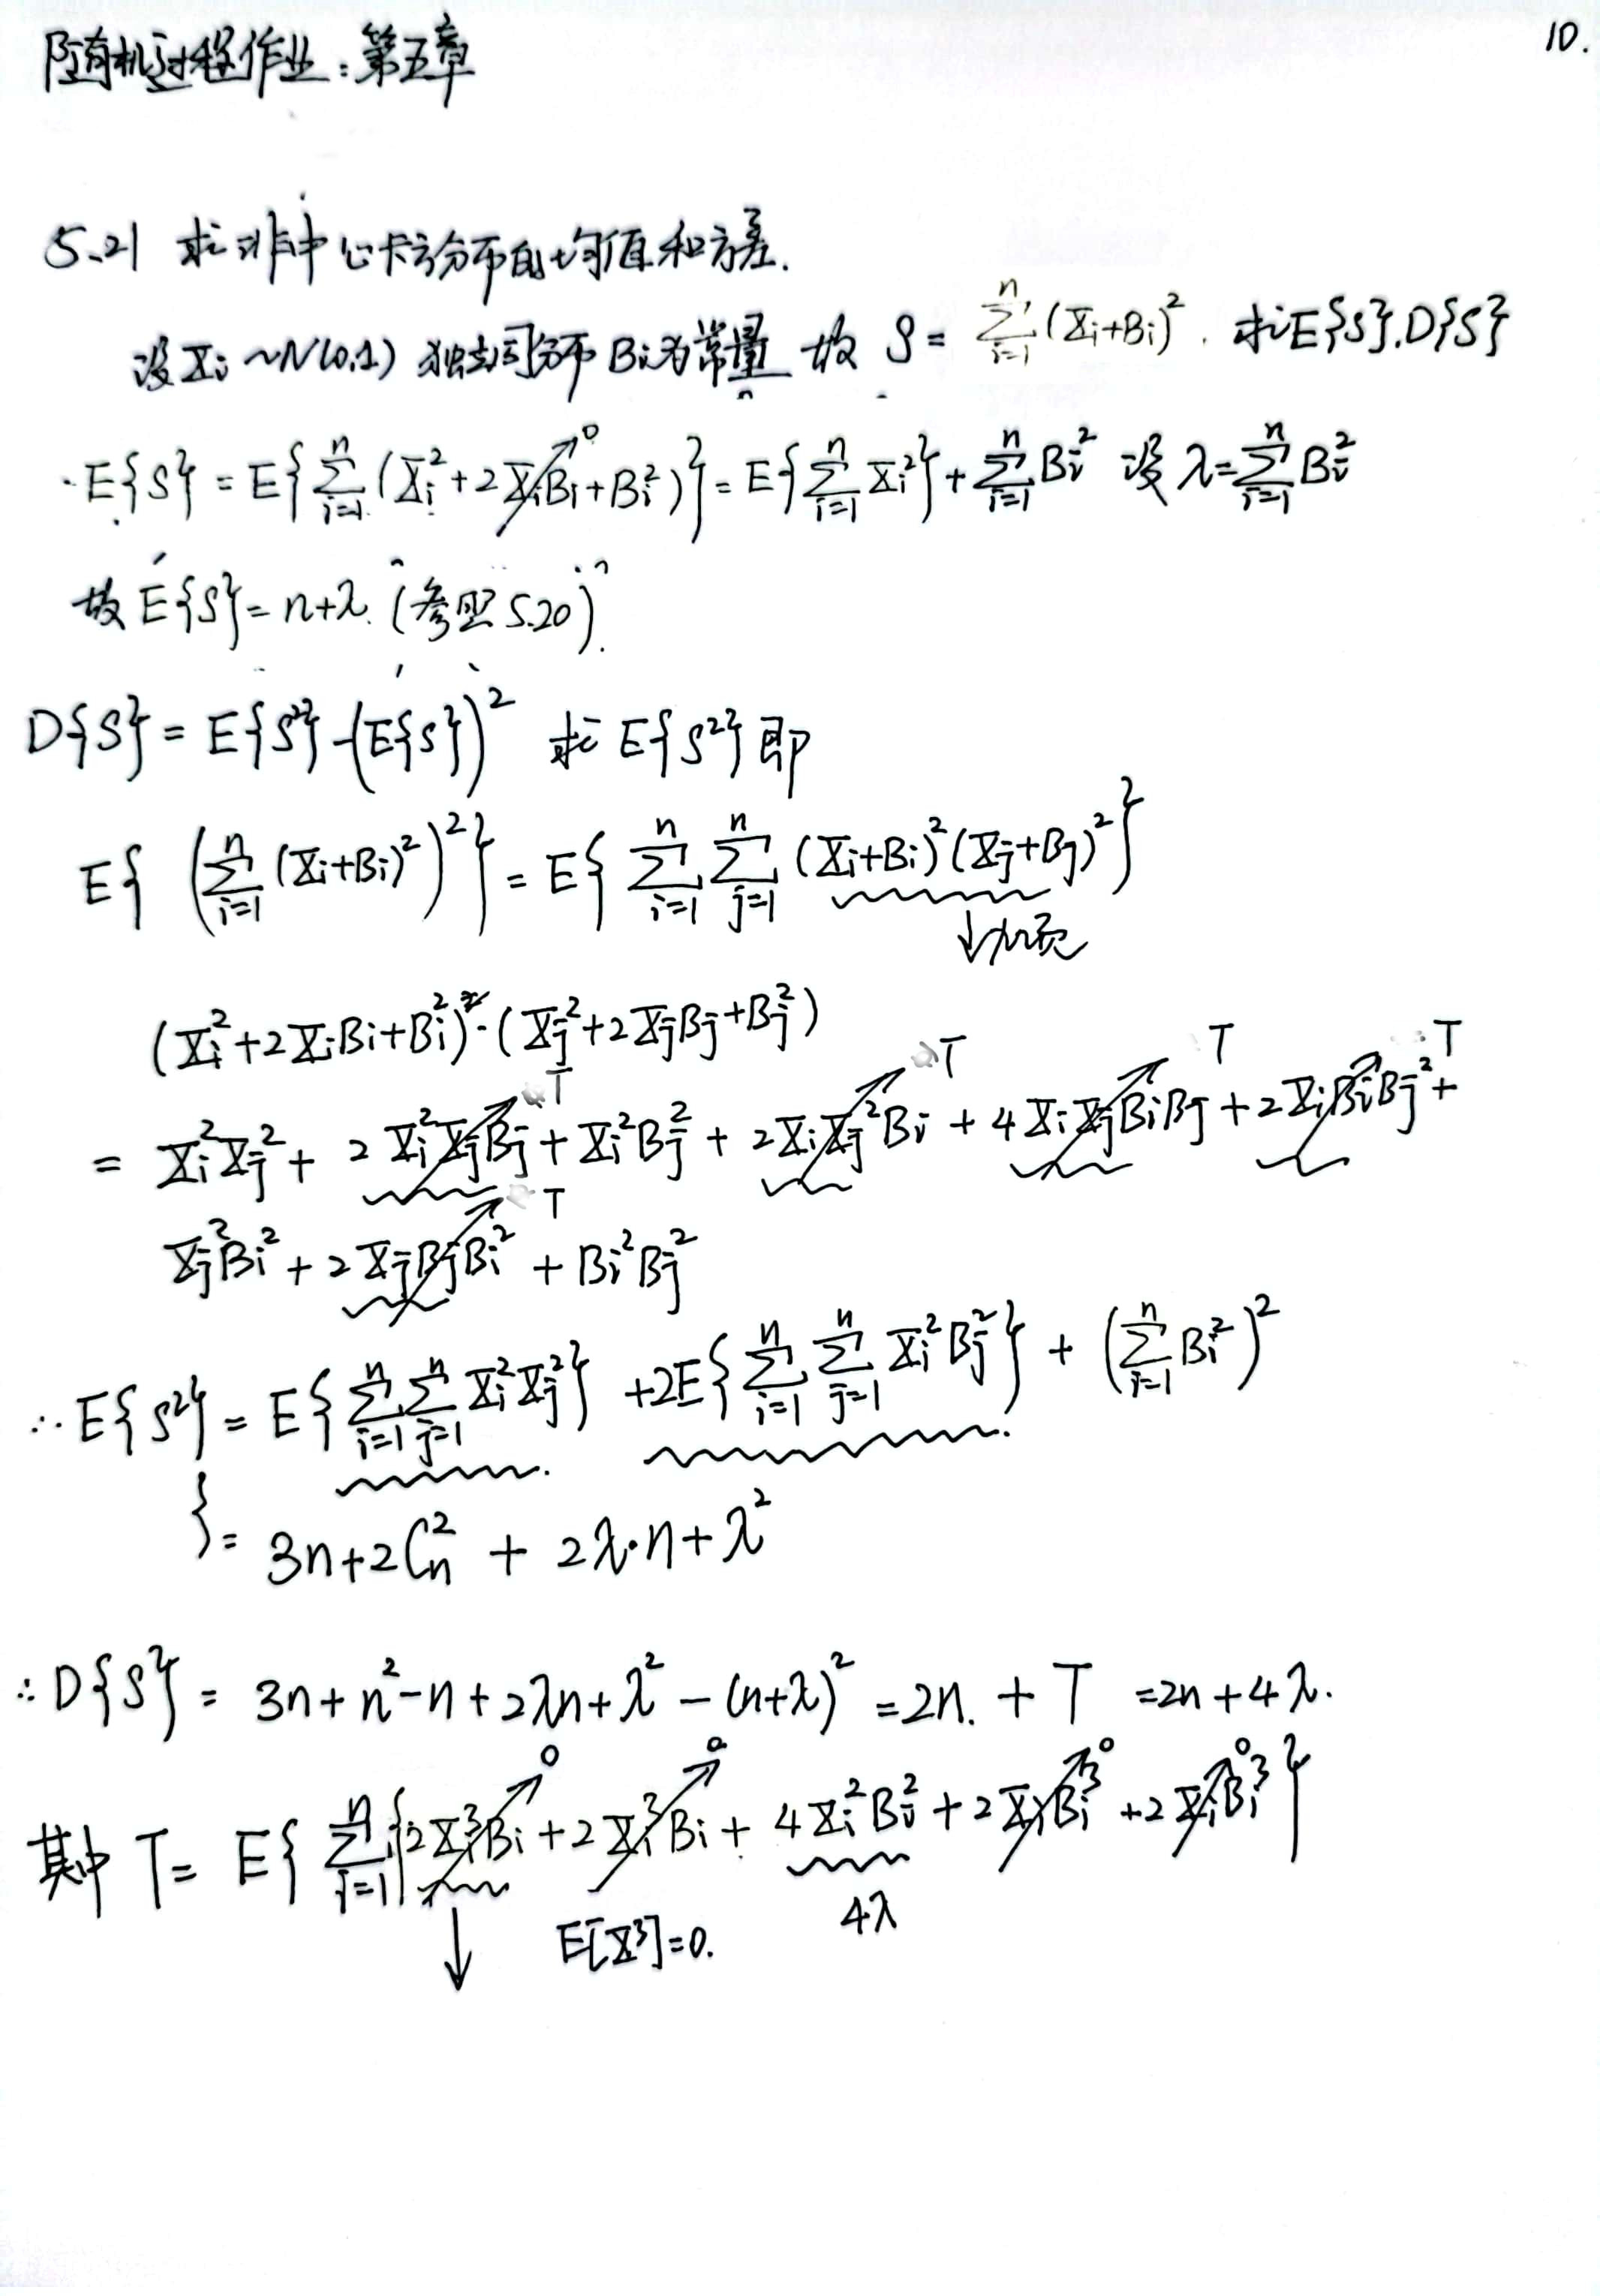 随机过程作业：第五章
10.
5.21 求非中心卡方分布的均值和方差.
设 X_i ~ N(0,1) 独立同分布 B_i为常量 故 S = \sum_{i=1}^{n} (X_i+B_i)^2. 求E{S}.D{S}
E{S} = E{\sum_{i=1}^{n} (X_i^2 + 2X_iB_i + B_i^2)} = E{\sum_{i=1}^{n} X_i^2} + \sum_{i=1}^{n} B_i^2 设 λ = \sum_{i=1}^{n} B_i^2
0
故 E{S} = n+λ. (参照 5.20).
D{S} = E{S^2} - (E{S})^2 求 E{S^2} 即
E{ (\sum_{i=1}^{n} (X_i+B_i)^2)^2 } = E{ \sum_{i=1}^{n} \sum_{j=1}^{n} (X_i+B_i)^2 (X_j+B_j)^2 }
(X_i^2 + 2X_iB_i + B_i^2)·(X_j^2 + 2X_jB_j + B_j^2)
T T T T
= X_i^2X_j^2 + 2X_i^2X_jB_j + X_i^2B_j^2 + 2X_iX_j^2B_i + 4X_iX_jB_iB_j + 2X_iB_iB_j^2 +
T
X_j^2B_i^2 + 2X_jB_jB_i^2 + B_i^2B_j^2
∴ E{S^2} = E{\sum_{i=1}^{n}\sum_{j=1}^{n} X_i^2X_j^2} + 2E{\sum_{i=1}^{n}\sum_{j=1}^{n} X_i^2B_j^2} + (\sum_{i=1}^{n} B_i^2)^2
= 3n + 2C_n^2 + 2λ·n + λ^2
∴ D{S} = 3n + n^2 - n + 2λn + λ^2 - (n+λ)^2 = 2n. + T = 2n + 4λ.
0 0 0 0
其中 T = E{ \sum_{i=1}^{n} {2X_i^3B_i + 2X_i^3B_i + 4X_i^2B_i^2 + 2X_iB_i^3 + 2X_iB_i^3 }
↓ E[X^3]=0. 4λ